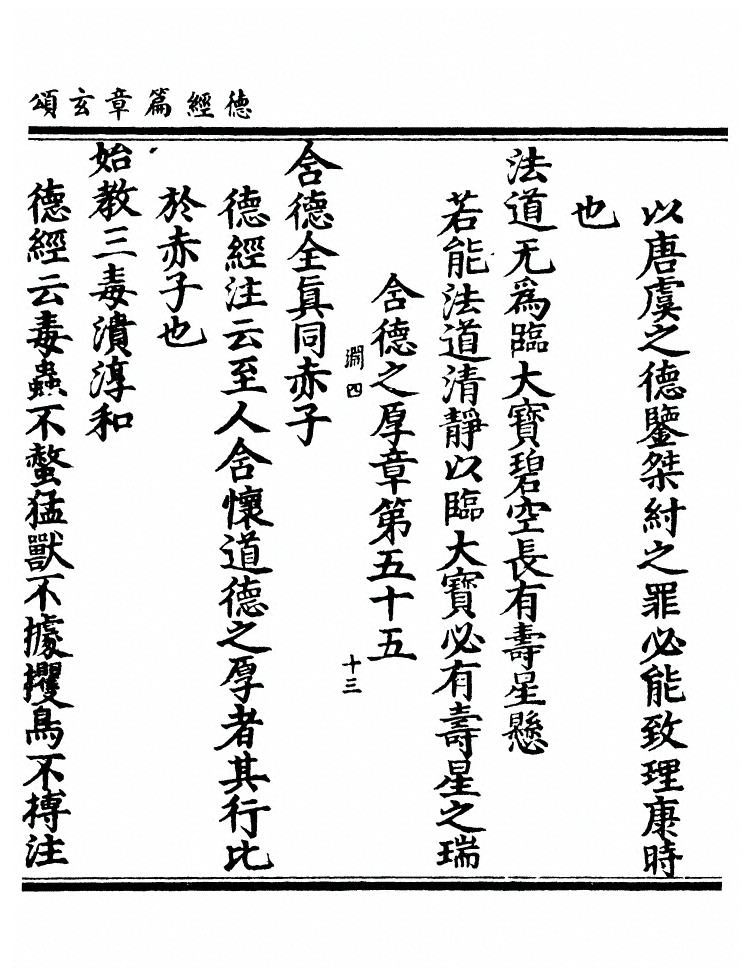 德經篇章玄頌
以唐虞之德鑒桀紂之罪必能致理康時
也
法道无爲臨大寶碧空長有壽星懸
若能法道清靜以臨大寶必有壽星之瑞
含德之厚章第五十五
澗四
十三
含德全眞同赤子
德經注云至人含懷道德之厚者其行比
於赤子也
始教三毒潰淳和
德經云毒蟲不螫猛獸不據攫鳥不搏注